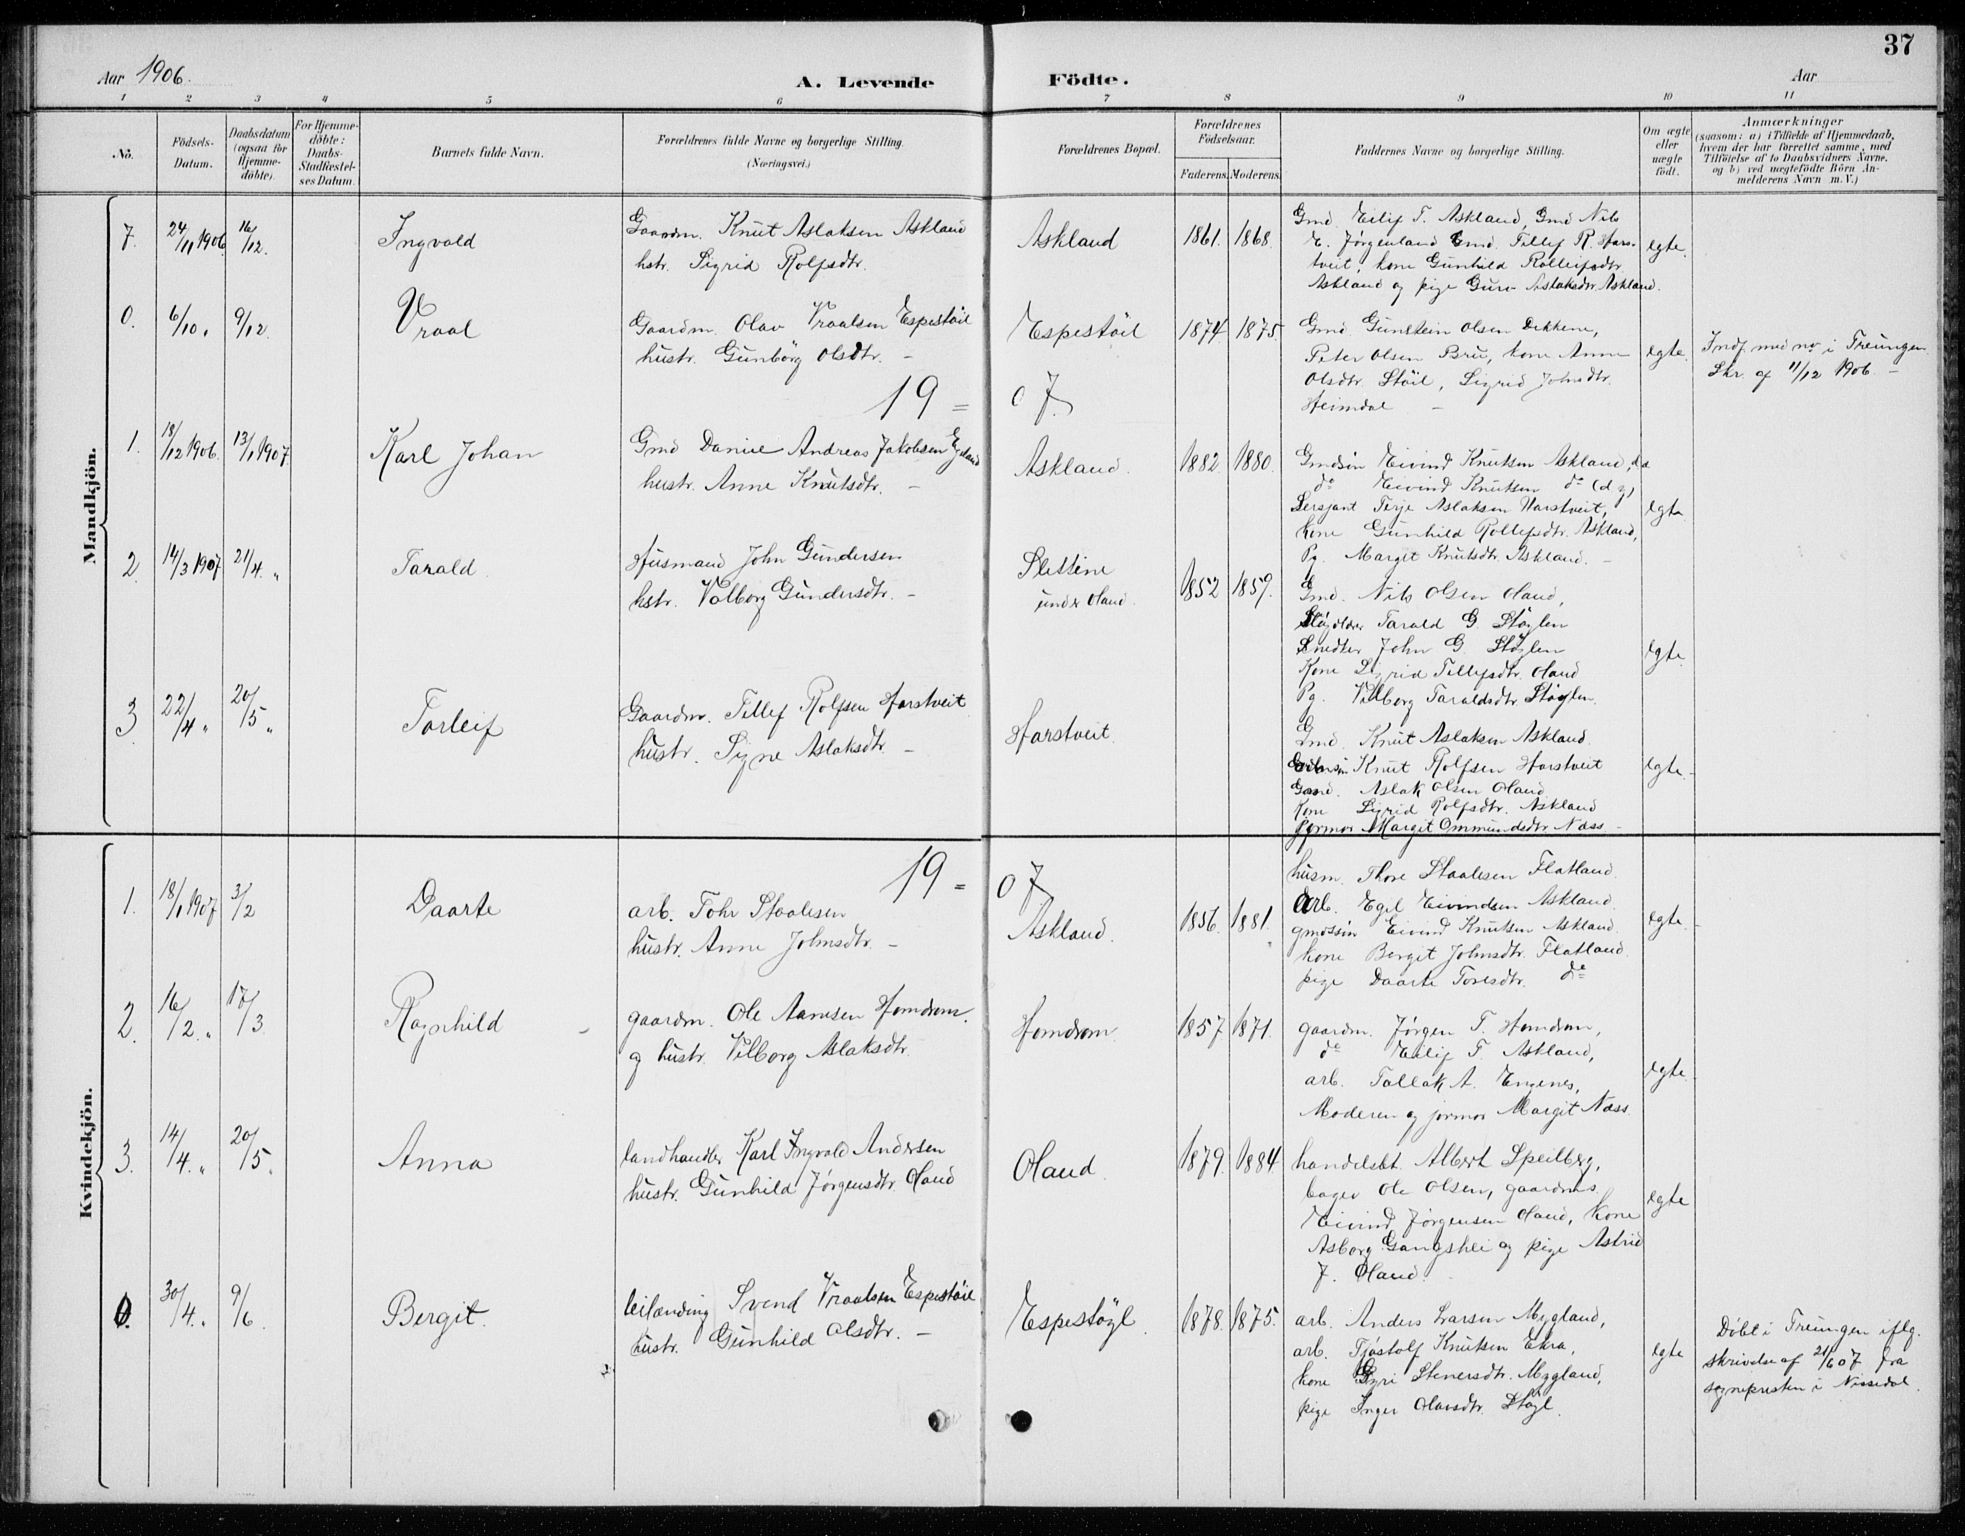 37
Aar 1906.
A. Levende Födte.
Aar
1 2 3 4 5 6 7 8 9 10 11
No.
Födsels-Datum.
Daabsdatum (ogsaa for Hjemme-döbte).
For Hjemme-döbte: Daabs-Stadfæstel-ses Datum.
Barnets fulde Navn.
Forældrenes fulde Navne og borgerlige Stilling.
(Næringsvei.)
Forældrenes Bopæl.
Forældrenes Födselsaar.
Faderens. Moderens.
Faddernes Navne og borgerlige Stilling.
Om ægte eller uægte födt.
Anmærkninger
(saasom: a) i Tilfælde af Hjemmedaab,
hvem der har forrettet samme, med
Tilföielse af to Daabsvidners Navne,
og b) ved uægtefödte Börn An-
melderens Navn m. V.)
Mandkjön.
7. 24/11 1906. 16/12. Ingvald
Gaardm. Knut Aslaksen Askland
hstr. Sigrid Rolfsdtr.
Askland 1861. 1868.
Gmd. Eilif T. Askland, Gmd Nils
E. Jørgenland Gmd. Tellef R. Hars-
tveit, kone Gunhild Rolleifsdtr
Askland og pige Guro Aslaksdtr. Askland.
egte.
0. 6/10 " 9/12. Vraal
Gaardm. Olav Vraalsen Espestöil
hustr. Gunbörg Olsdtr. –
Espestöil 1874 1875.
Gmd Gunstein Olsen Dekkene,
Peter Olsen Bru, kone Anne
Olsdtr. Stöil, Sigrid Johnsdtr.
Heimdal –
egte.
Indf. med no i Treungen
Skr. af 11/12 1906. –
19 = 07.
1. 18/12 1906. 13/1 1907. Karl Johan
Gmd Daniel Andreas Jakobsen Egeland
hustr. Anne Knutsdtr. –
Askland. 1882 1880.
Gmdsön Eivind Knutsen Askland, d.æ
do Eivind Knutsen do (d y)
Sersjant Terje Aslaksen Harstveit,
kone Gunhild Rollefsdtr. Askland,
Pg. Margit Knutsdtr. Askland. –
egte
2. 14/3 1907 21/4. " Tarald
Husmand John Gundersen
hstr. Valborg Gundersdtr. –
Slettene
under Oland.
1852 1859.
Gmd. Nils Olsen Oland,
Tarald G. Støylen
Snedker John G. Støylen
Kone Sigrid Tellefsdtr. Oland
Pg. Vilborg Taraldsdtr. Støylen
egte.
3. 22/4 " 20/5 " Torleif
Gaardm. Tellef Rolfsen Harstveit
hustr. Signe Aslaksdtr. –
Harstveit.
Gmd. Knut Aslaksen Askland.
Knut Rolfsen Harstveit
Gmd. Aslak Olsen Oland
Kone Sigrid Rolfsdtr. Askland
Jormor Margit Ommundsdtr. Næss –
egte.
Kvindekjön.
19 = 07
1. 18/1 1907 3/2 Daarte
arb. Tohr Staalesen
hustr. Anne Johnsdtr. –
Askland. 1856. 1881.
husm. Thore Staalesen Flatland.
Arb. Egel Eivindsen Askland.
gmdssön Eivind Knutsen Askland.
kone Bergit Johnsdtr. Flatland.
pige Daarte Toresdtr. do
egte.
2. 16/2. " 17/3 Ragnhild
gaardm. Ole Aanesen Homdrom.
og hustr. Vilborg Aslaksdtr.
Homdrom. 1857 1871.
gaardm. Jørgen T. Homdrom,
do Eilif T. Askland,
arb. Tallak A. Engenes,
Moderen og jormor Margit Næss
egte.
3. 14/4. " 20/5. Anna
landhandler Karl Ingvald Andersen
hustr. Gunhild Jørgensdtr. Oland
Oland. 1879. 1884
handelsbt. Albert Speilberg,
bager Ole Olsen, gaardms.
Eivind Jørgensen Oland, kone
Asborg Gangshei og pige Astrid
J. Oland.
egte
0. 30/4. " 9/6. Bergit.
leilænding Svend Vraalsen Espestöil
hustr. Gunhild Olsdtr. –
Espestøyl. 1878. 1875.
arb. Anders Larsen Mygland,
arb. Tjøstolf Knutsen Ekra,
kone Gyri Stenersdtr. Mygland,
pige Inger Olavsdtr. Støyl.
egte
Döbt i Treungen iflg.
skrivelse af 21/6 07 fra
sognepresten i Nissedal.